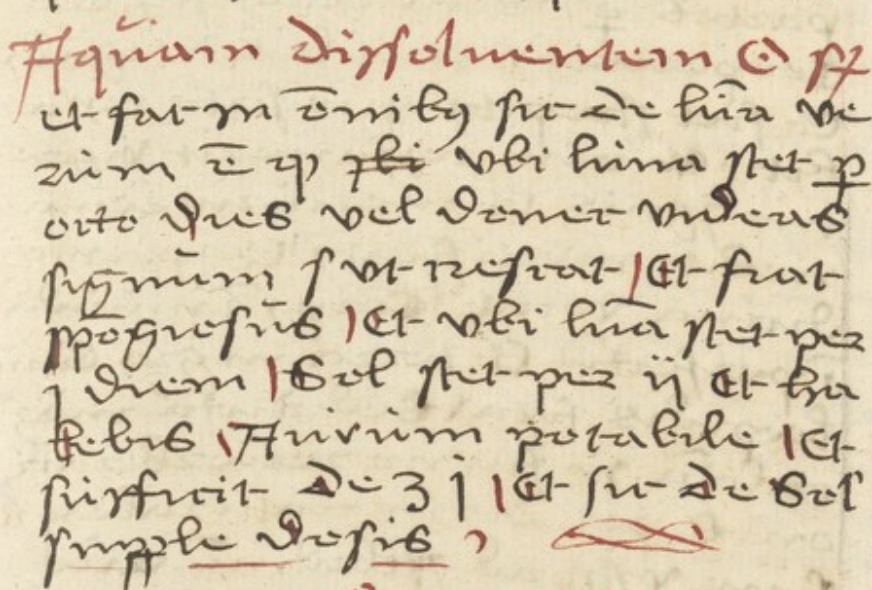 Aquam dissoluentem ☉
et fac in o̅nibꝫ sic de lūa ve
rum ē ꝙ ubi luna stet ꝑ
octo dies vel donec videas
signum s ut crescat Et fiat
spōgiosus Et ubi lūa stet per
j diem Sol stet per ij Et ha
bebis Aurum potabile Et
sufficit de ℥ j Et sic de Sol
dosis